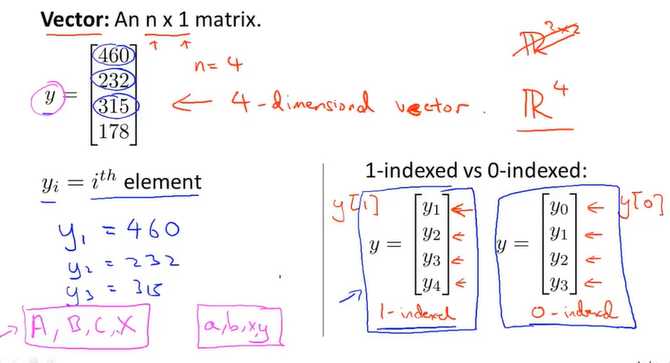 Vector: An n x 1 matrix.
y = [460 232 315 178]
n = 4
← 4-dimensional vector.
ℝ³ˣ²
ℝ⁴
yᵢ = iᵗʰ element
y₁ = 460
y₂ = 232
y₃ = 315
A, B, C, X
a, b, x, y
1-indexed vs 0-indexed:
y[1]
y = [y₁ y₂ y₃ y₄]
1-indexed
y[0]
y = [y₀ y₁ y₂ y₃]
0-indexed